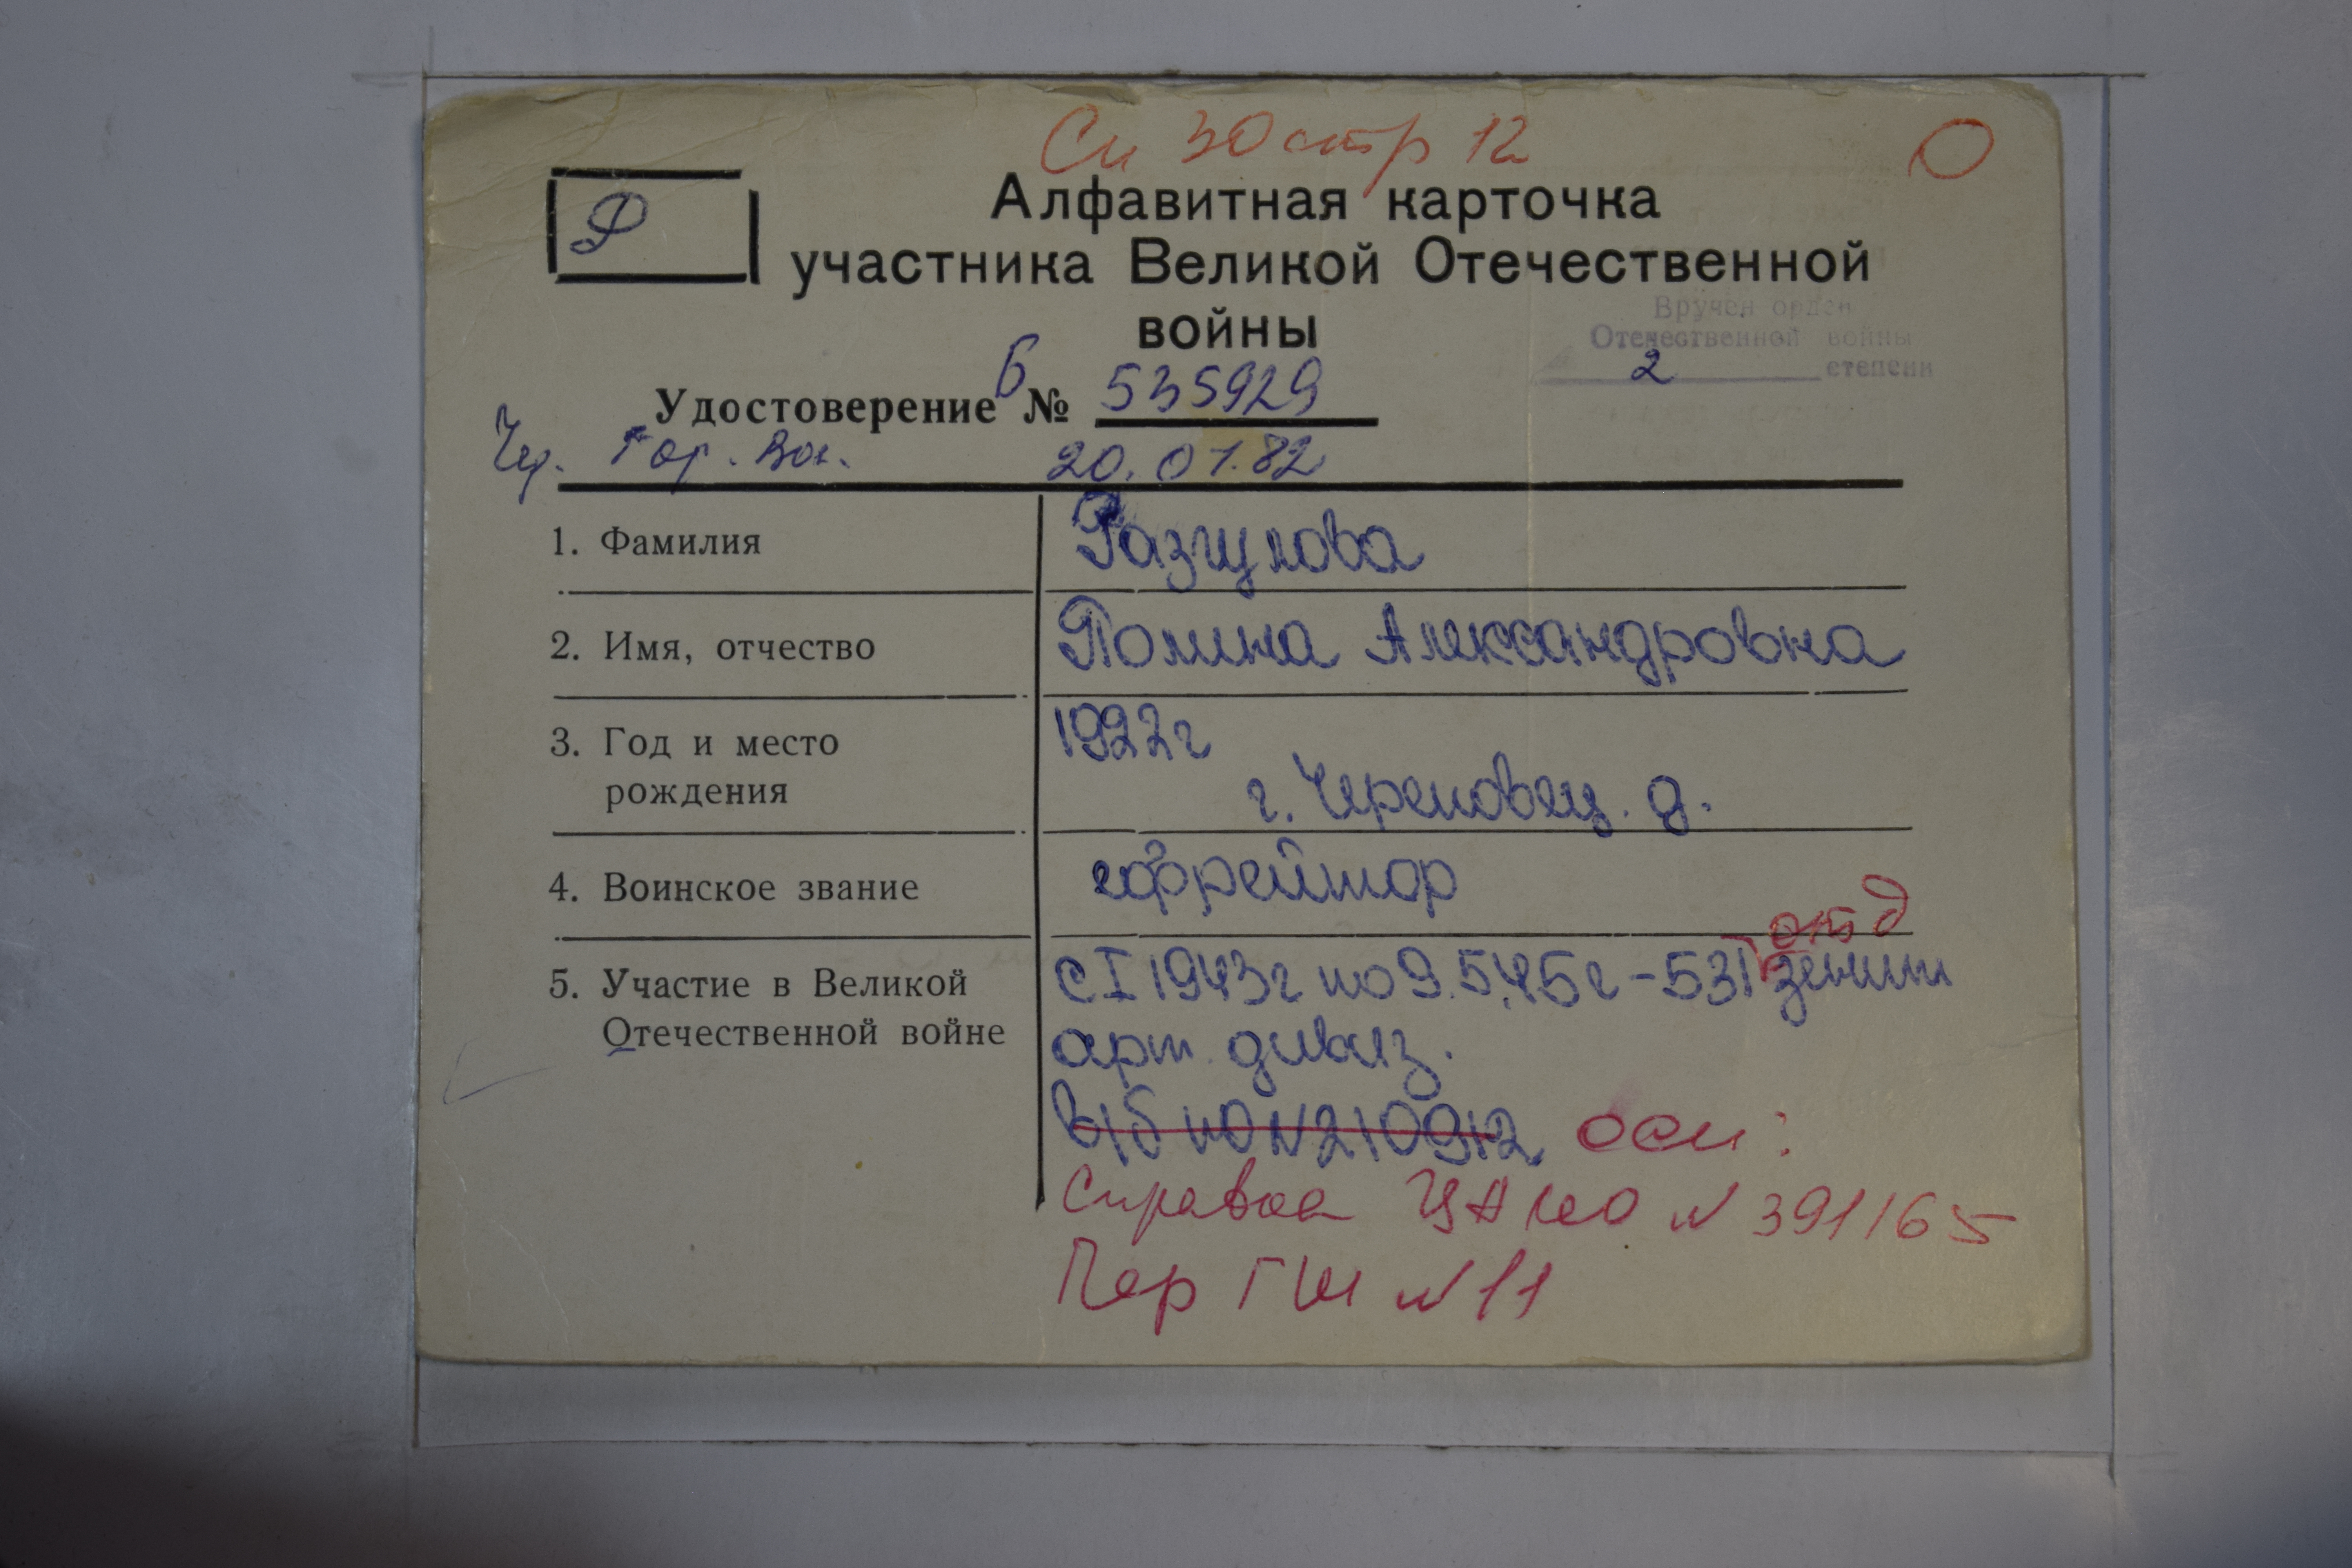 Сп 30 стр 12 О
Ф
Алфавитная карточка
участника Великой Отечественной
войны
Вручен орден
Отечественной войны
2 степени
Удостоверение Б № 535929
Чер. Гор. Вк. 20.01.82
1. Фамилия Разгулова
2. Имя, отчество Полина Александровна
3. Год и место 1922г
рождения г. Череповец. д.
4. Воинское звание ефрейтор
отд
5. Участие в Великой с I 1943г по 9.5.45г - 531 зенит
Отечественной войне арт. дивиз.
в/б НО №210912 осн:
Справка ЦАМО № 391165
Пер ГШ №11